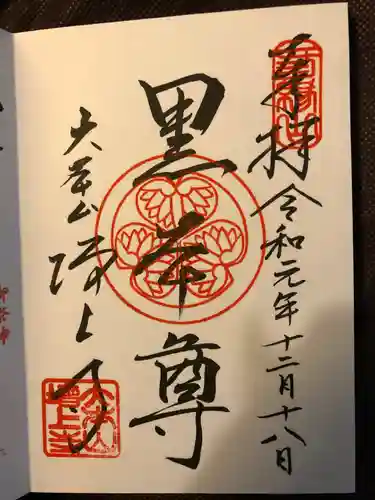 奉拝
令和元年十二月十八日
黒本尊
大本山
増上寺